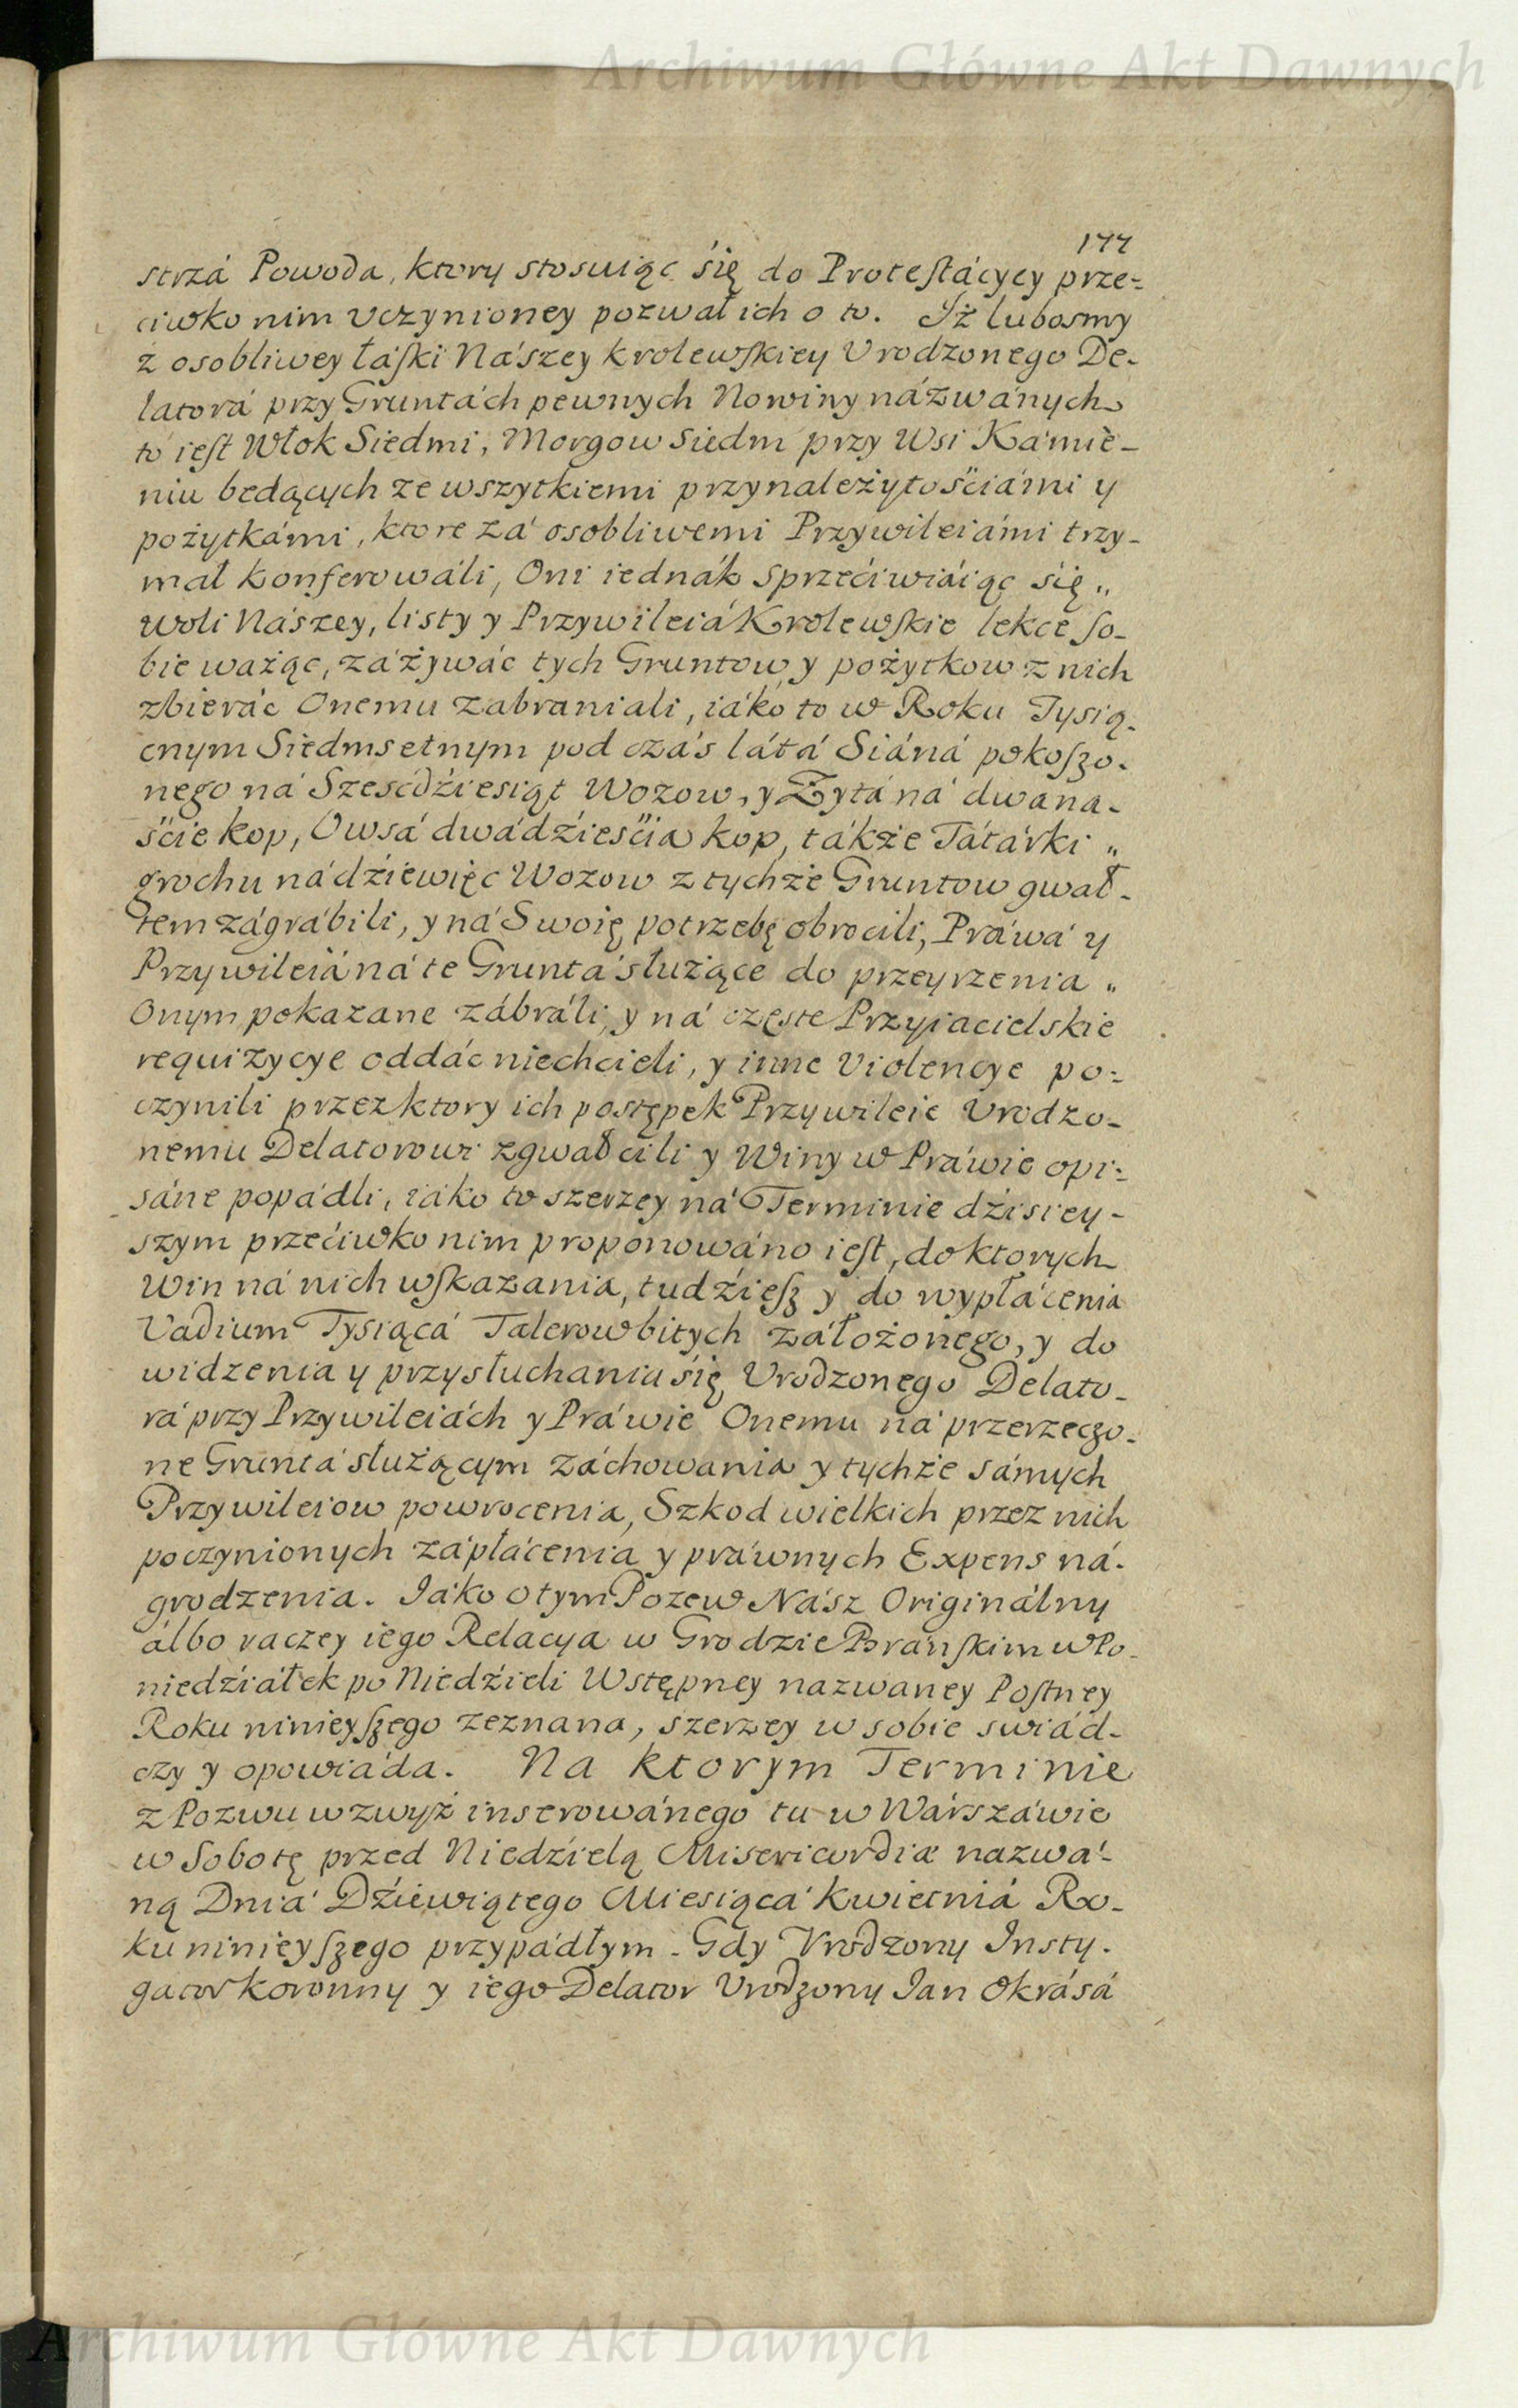 Archiwum Główne Akt Dawnych
177
strzá Powoda, ktory stosuiąc się do Protestácycy prze=
ciwko nim vczynioney pozwał ich o to. Iż lubosmy
z osobliwey łáski Nászey krolewskiey Vrodzonego De-
latorá przy Gruntách pewnych Nowiny názwánych
to iest Włok Siedmi, Morgow siedm przy Wsi Kámie-
niu bedących ze wszytkiemi przynależytościámi y
pożytkámi, ktore zá osobliwemi Przywileiámi trzy-
mał konferowáli, Oni iednák sprzećiwiáiąc się „
woli Nászey, listy y Przywileiá Krolewskie lekce so-
bie ważąc, záżywáć tych Gruntow y pożytkow z nich
zbieráć Onemu zabraniali, iáko to w Roku Tysią-
cnym Siedmsetnym pod czás látá Siáná pokoszo-
nego ná Sześćdźiesiąt Wozow, y Żytá ná dwana-
ście kop, Owsá dwádźieścia kop, tákże Tátárki „
grochu ná dźiewięc Wozow z tychże Gruntow gwał-
tem zágrábili, y ná Swoię potrzebę obrocili, Práwá y
Przywileiá ná te Gruntá służące do przeyrzenia „
Onym pokazane zábráli, y ná częste Przyiacielskie
requizycye oddáć niechcieli, y inne Violencye po=
czynili przez ktory ich postępek Przywileie Vrodzo-
nemu Delatorowi zgwałcili y Winy w Práwie opi=
sáne popádli, iáko to szerzey ná Terminie dźisiey-
szym przećiwko nim proponowáno iest, do ktorych
Win ná nich wskazania, tudźiesz y do wypłácenia
Vádium Tysiącá Talerow bitych záłożonego, y do
widzenia y przysłuchania się Vrodzonego Delato-
rá przy Przywileiách y Práwie Onemu ná przerzeczo-
ne Gruntá służącym záchowania y tychże sámych
Przywileiow powrocenia, Szkod wielkich przez nich
poczynionych zápłácenia y práwnych Expens ná-
grodzenia. Iáko o tym Pozew Nász Originálny
álbo raczey iego Relacya w Grodzie Bránskim w Po-
niedźiáłek po Niedźieli Wstępney nazwaney Postney
Roku ninieyszego zeznana, szerzey w sobie swiád-
czy y opowiáda. Na ktorym Terminie
z Pozwu wzwyż inserowánego tu w Wárszáwie
w Sobotę przed Niedźielą Misericordiæ nazwá-
ną Dniá Dźiewiątego Miesiącá kwietniá Ro-
ku ninieyszego przypádłym. Gdy Vrodzony Insty-
gator koronny y iego Delator Vrodzony Ian Okrásá
Archiwum Główne Akt Dawnych